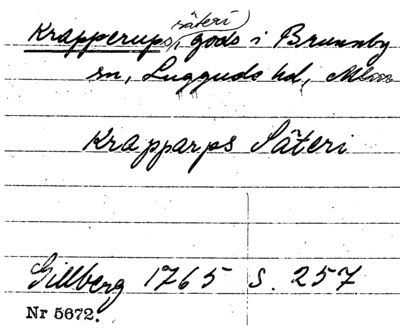 säteri
Krapperups, gods i Brunnby
sn, Luggude hd, Mlm
Krapparps Säteri
Gillberg 1765 s. 257
Nr 5672.